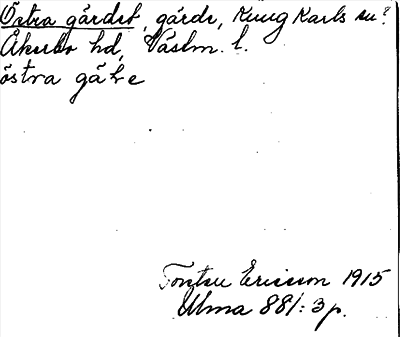 Östra gärdet, gärde, Kung Karls sn?
Åkerbo hd, Västm. l.
östra gä̀ɫe
Torsten Ericsson 1915
Ulma 881:3 p.